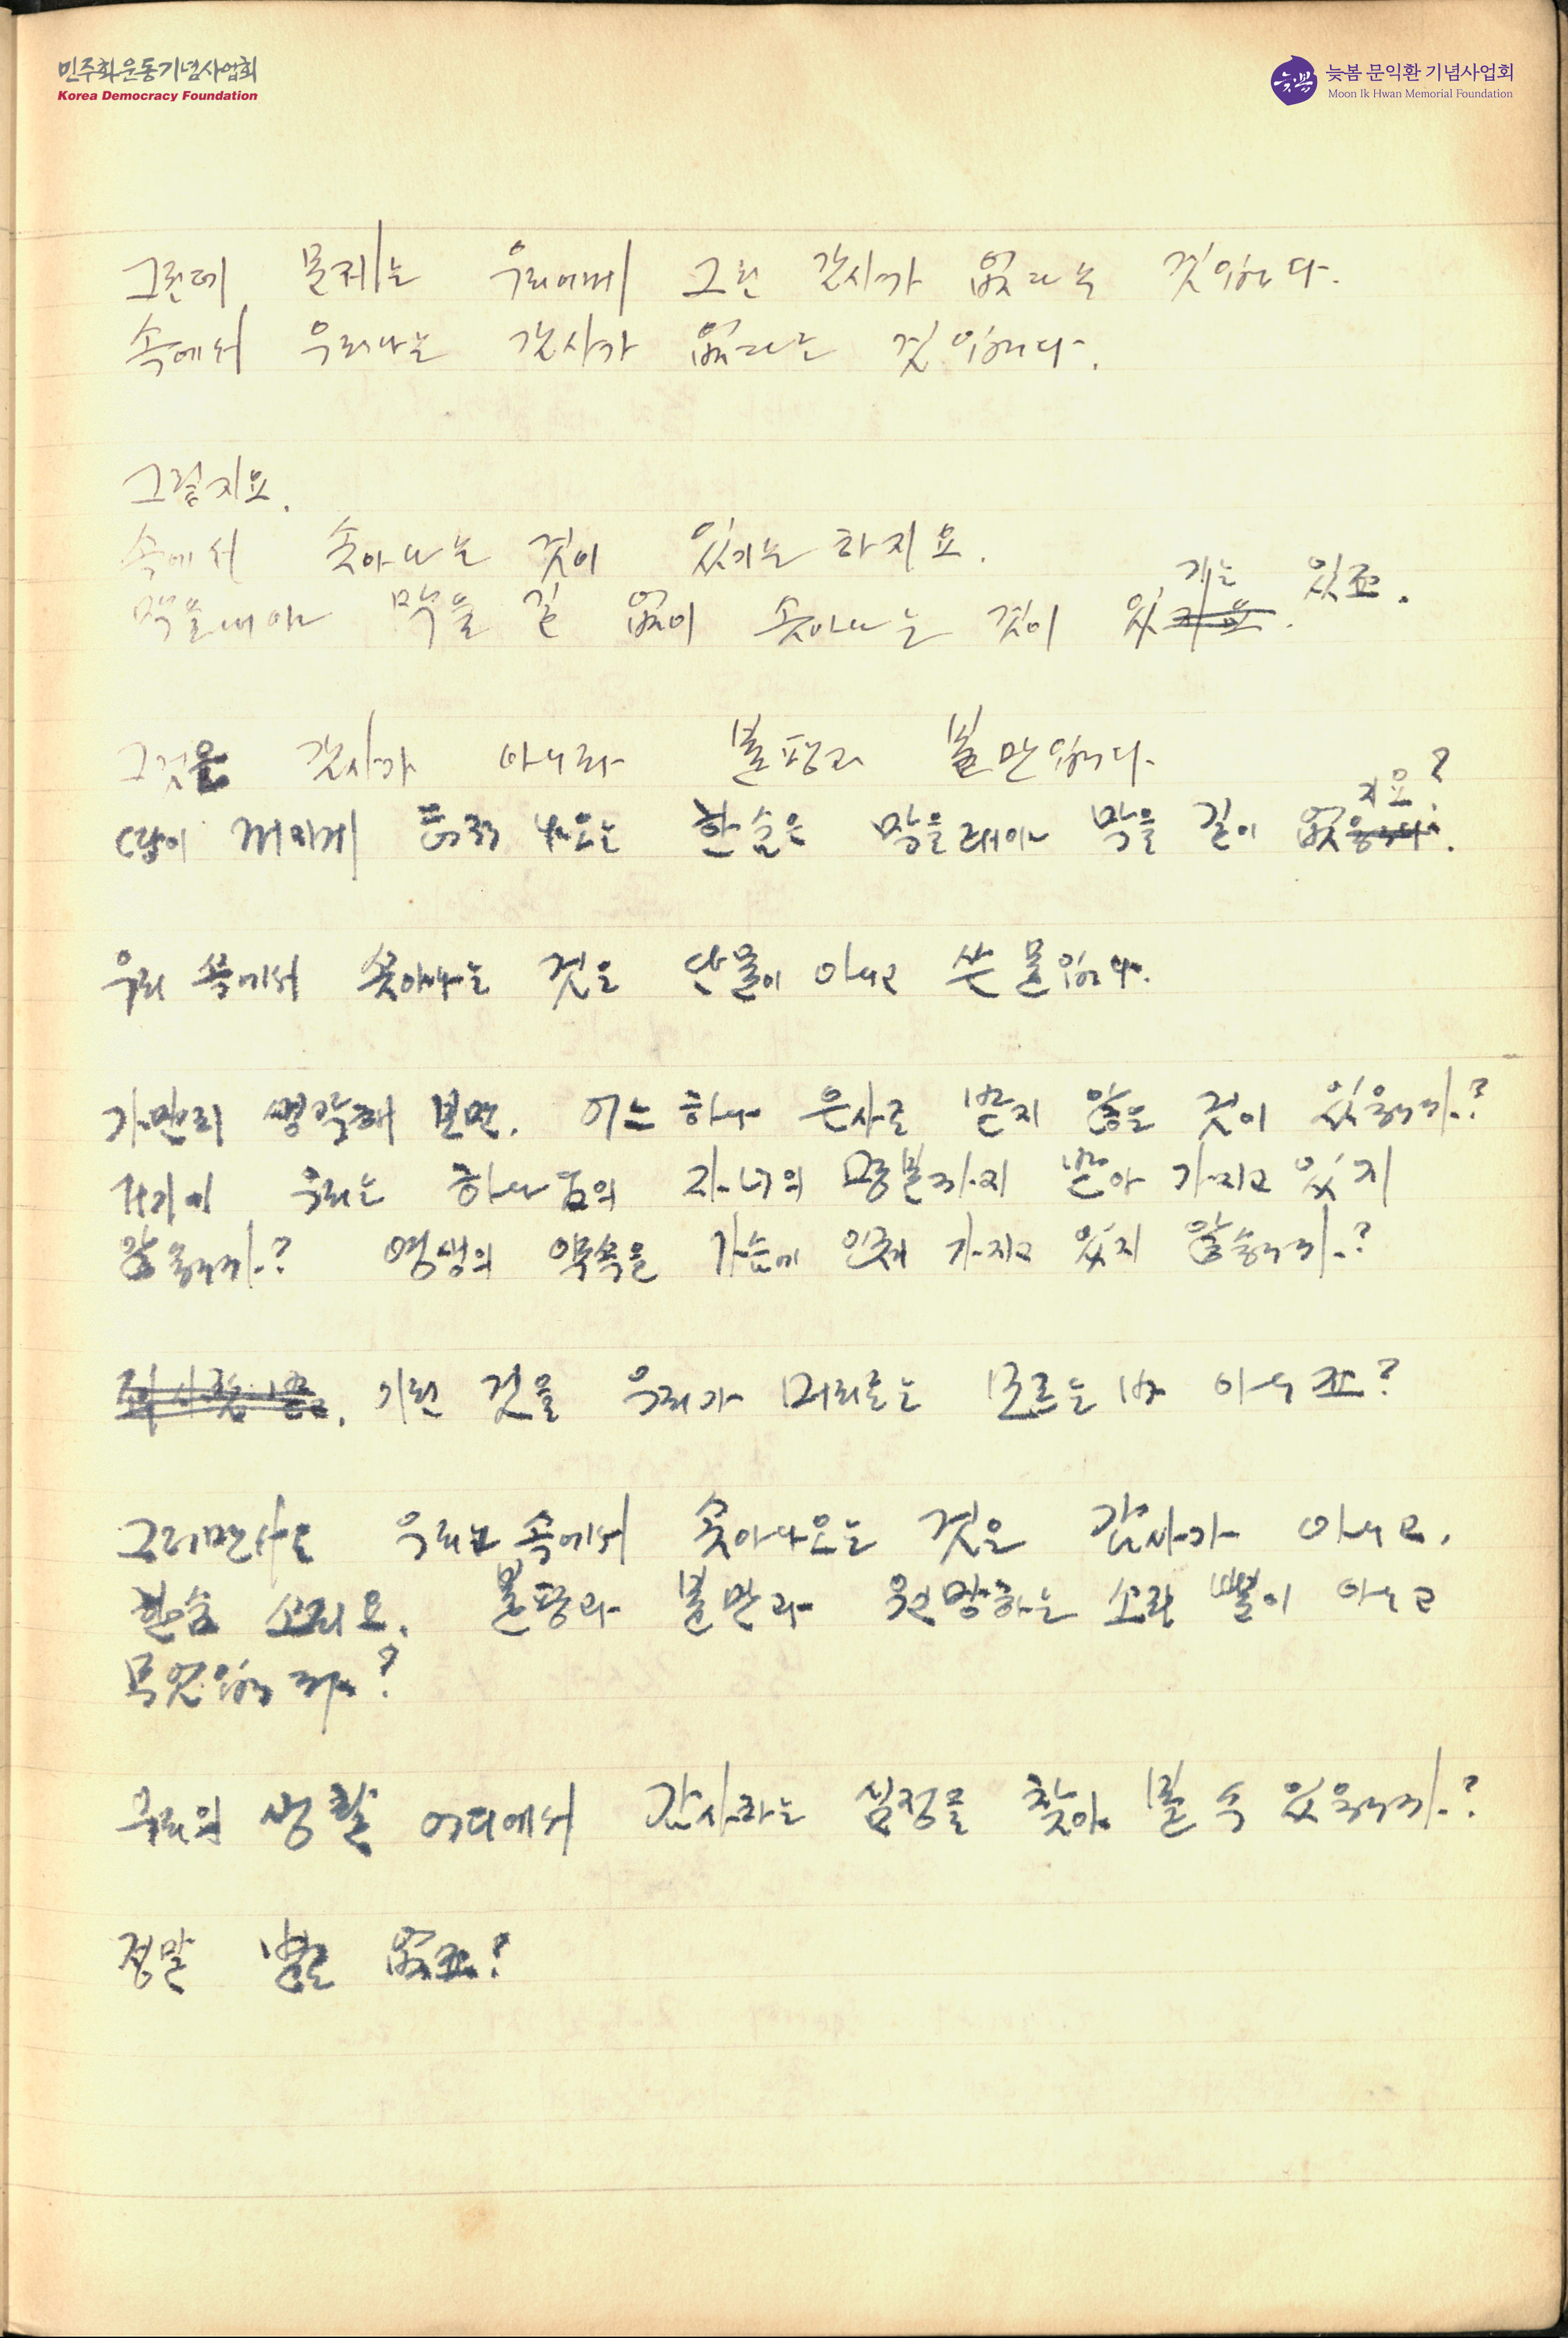 민주화운동기념사업회
Korea Democracy Foundation
늦봄
늦봄 문익환 기념사업회
Moon Ik Hwan Memorial Foundation
그런데 문제는 우리에게 그런 감사가 없다는 것입니다.
속에서 우러나는 감사가 없다는 것입니다.
그렇지요.
속에서 솟아나는 것이 있기는 하지요.
막을내야 막을 길 없이 솟아나는 것이 있지요. 기는 있죠.
그것은 감사가 아니라 불평과 불만입니다.
땅이 꺼지게 나오는 한숨은 막을래야 막을 길이 없습니다. 지요?
우리 속에서 솟아나는 것은 단물이 아니고 쓴 물입니다.
가만히 생각해 보면, 어느 하나 은사로 받지 않은 것이 있습니까?
거기에 우리는 하나님의 자녀의 명분까지 받아 가지고 있지
않습니까? 영생의 약속을 가슴에 안고 가지고 있지 않습니까?
이런 것을 우리가 머리로는 모르는 바 아니죠?
그러면서도 우리 속에서 솟아나오는 것은 감사가 아니고,
한숨 소리요, 불평과 불만과 원망하는 소리 뿐이 아니고
무엇입니까?
우리의 생활 어디에서 감사하는 심정을 찾아 볼 수 있습니까?
정말 별로 없죠?